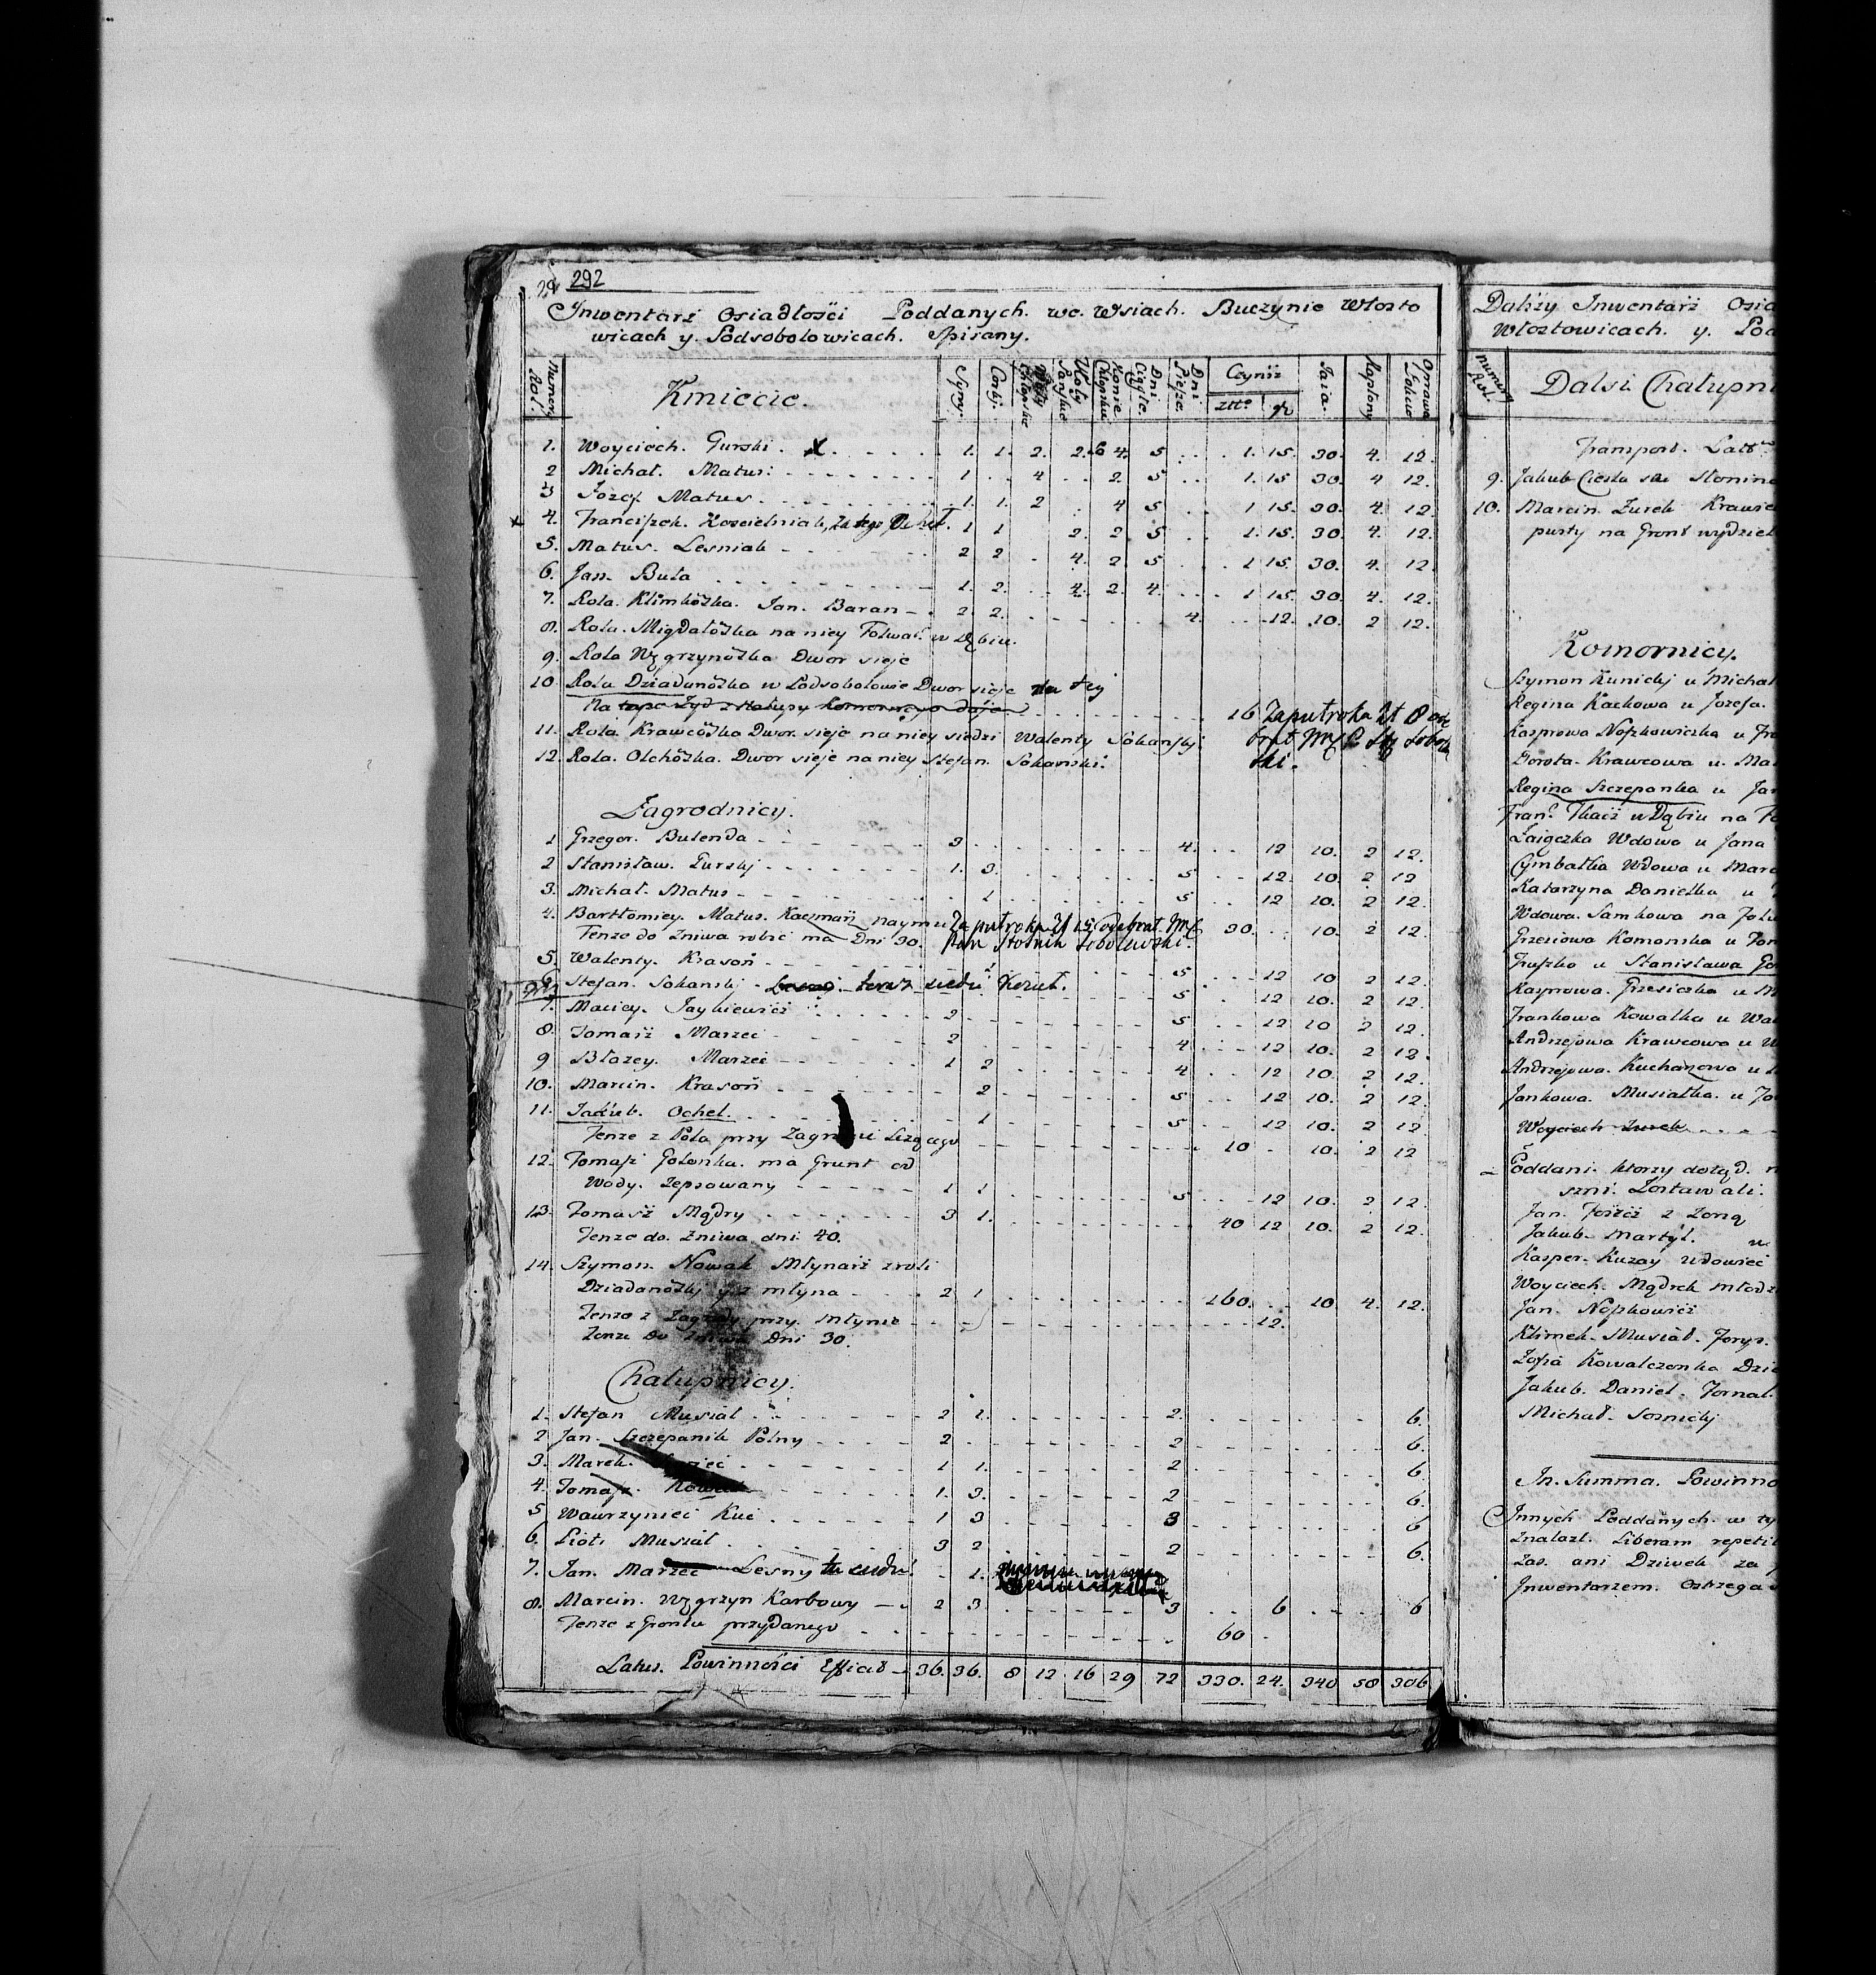 292
Inwentarż Osiadłości Poddanych. we. Wsiach. Buczynie Włosto
wicach y. Podsobolowicach. Spisany.
Numer Rol. Kmiecie. Syny. Corki. Woły Chłopskie Woły Panskie Konie Chłopskie Dni Ciągłe. Dni Piesze. Czynsz Złto gr Jaia. Kapłony Oprawa
1. Woyciech. Gurski. x 1. 1. 2. 2. 6 4. 5 1. 15. 30. 4. 12.
2 Michał. Matus: 1 4 2. 5 1. 15 30. 4 12.
3 Jozef Matus. 1. 1. 2 4 5 1 15. 30. 4. 12.
x 4. Franciszek. Koscielniak, 1 1 2. 2. 5 1. 15. 30. 4. 12.
5. Matus. Lesniak 2 2 4. 2 5 1 15. 30. 4. 12.
6. Jan. Buła 1. 2. 4. 2. 4. 1 15. 30 4. 12.
7. Rola. Klimkożka. Jan. Baran 2 2. 4. 12. 10. 2 12.
8. Rola. Migdałożka na niey Folwak w Dębiu.
9. Rola Węgrzynożka Dwor sieje
10 Rola Dziadunożka w Podsobolowie Dwor sieje
16 Zaputroka Zt 8
11. Rola Krawcożka Dwor. sieje na niey siedzi Walenty Sokanski.
12. Rola. Olchożka. Dwor sieje na niey Stefan. Sokanski.
Zagrodnicy.
1 Grzegor. Bulenda 3 4. 12 10. 2 12.
2 Stanisław. Gurskj 1. 3. 5 12. 10. 2 12
3. Michał. Matus 1 5 12 10. 2 12.
4. Bartłomiey. Matus. Kaczmarż naymu 30. 10. 2 12.
Tenże do żniwa robić ma Dni 30. Pan Stolnik Sobolewski.
5. Walenty. Krasoń 1 5 12 10 2 12.
6 Stefan. Sokanskj teraz siedzi Kozub. 5 12 10. 2 12.
7. Maciey. Jaykiewicż 2 5 12 10 2 12.
8. Tomasż Marzec 2 4 12 10. 2 12.
9 Błazey. Marzec 1 2 4 12 10. 2 12.
10. Marcin. Krasoń 2 5 12 10. 2 12.
11. Jakub. Ochel. 1 5 12 10. 2 12
Tenże z Pola przy Zagrodzie Leżącego 10 10. 2 12
12. Tomasz Golonka. ma Grunt od
Wody. Zepsowany 1 1 5 12 10. 2 12.
13. Tomasż Mądry 3 1. 40 12 10. 2 12.
Tenże do. żniwa dni 40.
14. Szymon. Nowak Młynarż z roli
Dziadanożkj y z młyna 2 1 160. 10 4. 12.
Tenże z Zagrody przy. Młynie 12.
Tenże do żniwa Dni 30.
Chałupnicy.
1. Stefan Musiał 2 1. 2. 6.
2 Jan. Szczepanik Polny 2 2 6.
3. Marek. 1 1. 2 6.
4. Tomasz. 1. 3. 2 6.
5 Wawrzyniec Kuc 1 3 3 6
6. Piotr Musiał 3 2 2 6.
7. Jan. Marzec Lesny 1.
8. Marcin. Węgrzyn Karbowy 2 3 3 6 6
Tenże z Grontu przydanego 60
Latus. Powinności Efficit 36. 36. 8 12 16 29 72 330. 24. 340 58 306
Dalszy Inwentarż Osia
Włostowicach. y. Pod
Numer Rol. Dalsi Chałupni
Transport. Lat
9. Jakub Ciesla
10. Marcin. Zurek Krawie
pusty na Gront wydziel
Komornicy.
Szymon Kunickj u Michał
Regina Kackowa u Jozefa.
Kasprowa Nopkowiczka u
Dorota. Krawcowa u. Ma
Regina Szczeponka u Jan
Fran. Tkacż w Dąbiu na Fo
Zaigczka Wdowa u Jana
Cymbałka Wdowa u Marc
Katarzyna Danielka u
Wdowa. Samkowa na Folw
Grzesiowa Komonska u Tom
Truszko u Stanisława Go
Kasprowa. Grzesiczka u M
Frankowa Kowalka u Wal
Andrzejowa Krawcowa u
Andrzejowa. Kuchanowa u
Jankowa. Musiałka. u Jo
Woyciech Zurek
Poddani. ktorzy dotąd.
szni. Zostawali.
Jan. z Zoną
Jakub. Martyl.
Kasper. Kuzay wdowiec
Woyciech. Mądrek młodz
Jan. Nopkowicż
Klimek. Musiał. Foryś.
Zofia Kowalczonka Dzi
Jakub. Daniel. Fornal.
Michał. Sosnickj
In. Summa. Powinno
Innych Poddanych. w ty
Znalazł. Liberam repeti
Zas. ani Dziwek za
Inwentarzem. Ostrzega